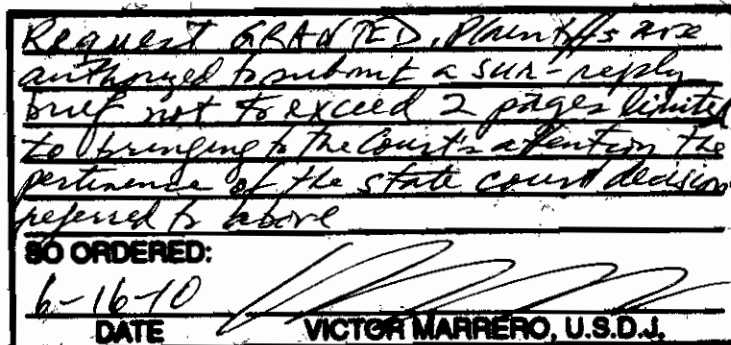 Request GRANTED. Plaintiffs are
authorized to submit a sur-reply
brief not to exceed 2 pages limited
to bringing to the Court's attention the
pertinence of the state court decision
referred to above
SO ORDERED:
6-16-10
DATE VICTOR MARRERO, U.S.D.J.